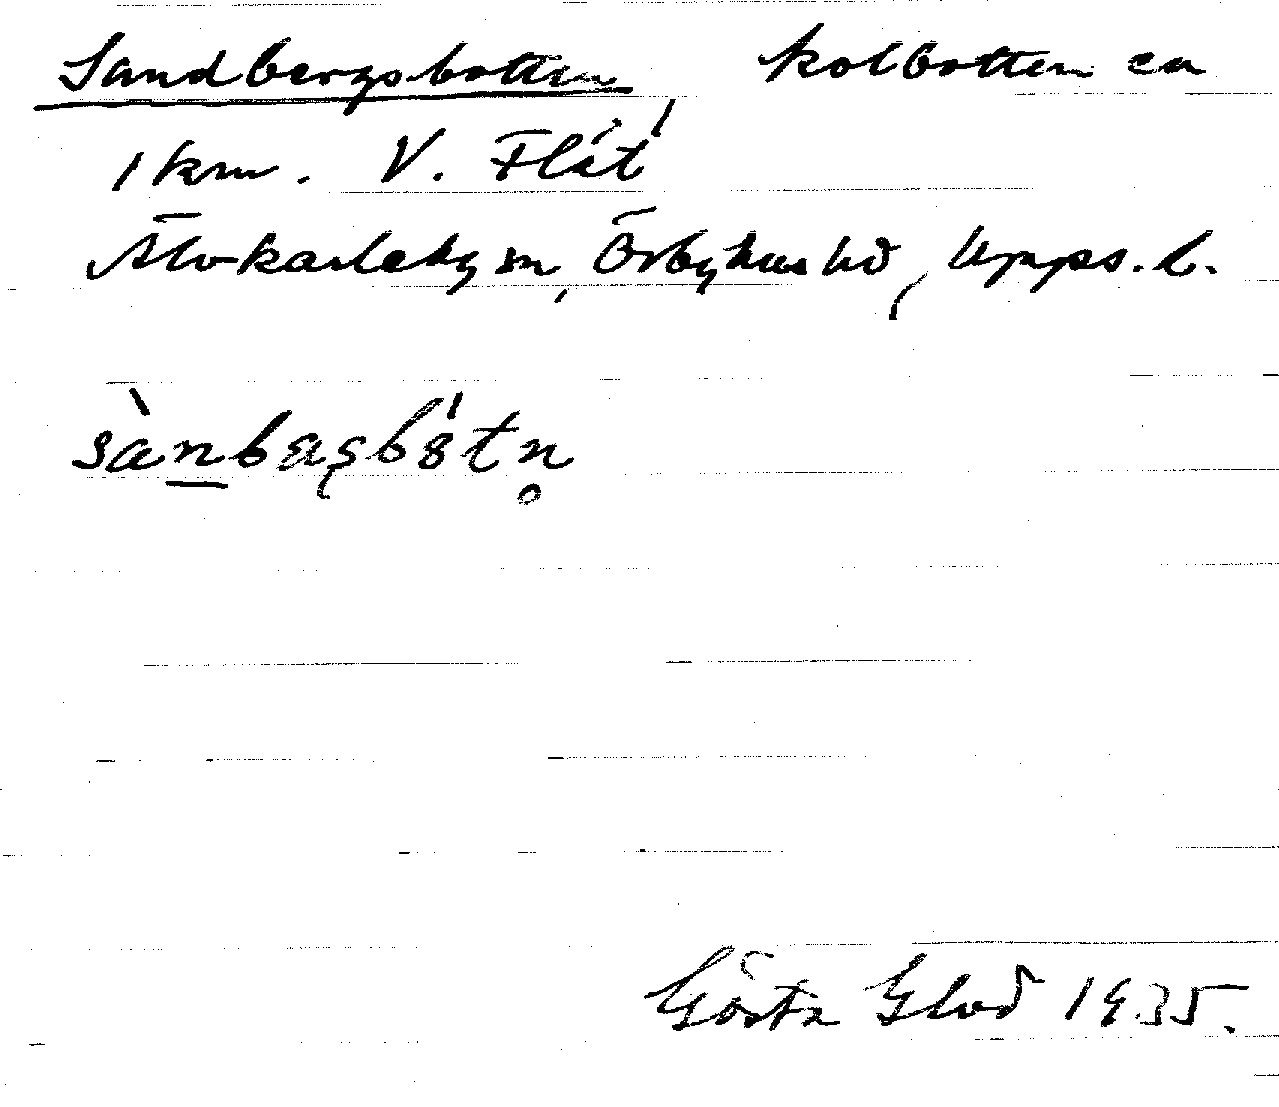 Sandbergsbotten, kolbotten ca
1 km. V. Flät
Älvkarleby sn, Örbyhus hd, Upps. l.
sànbaşbòtn̥
Gösta Glod 1935.